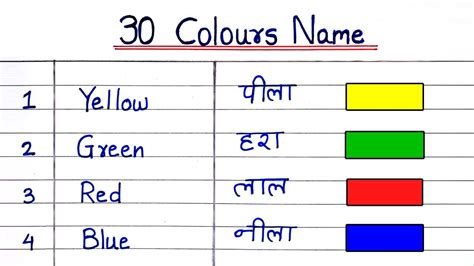 30 Colours Name
1 Yellow पीला
2 Green हरा
3 Red लाल
4 Blue नीला